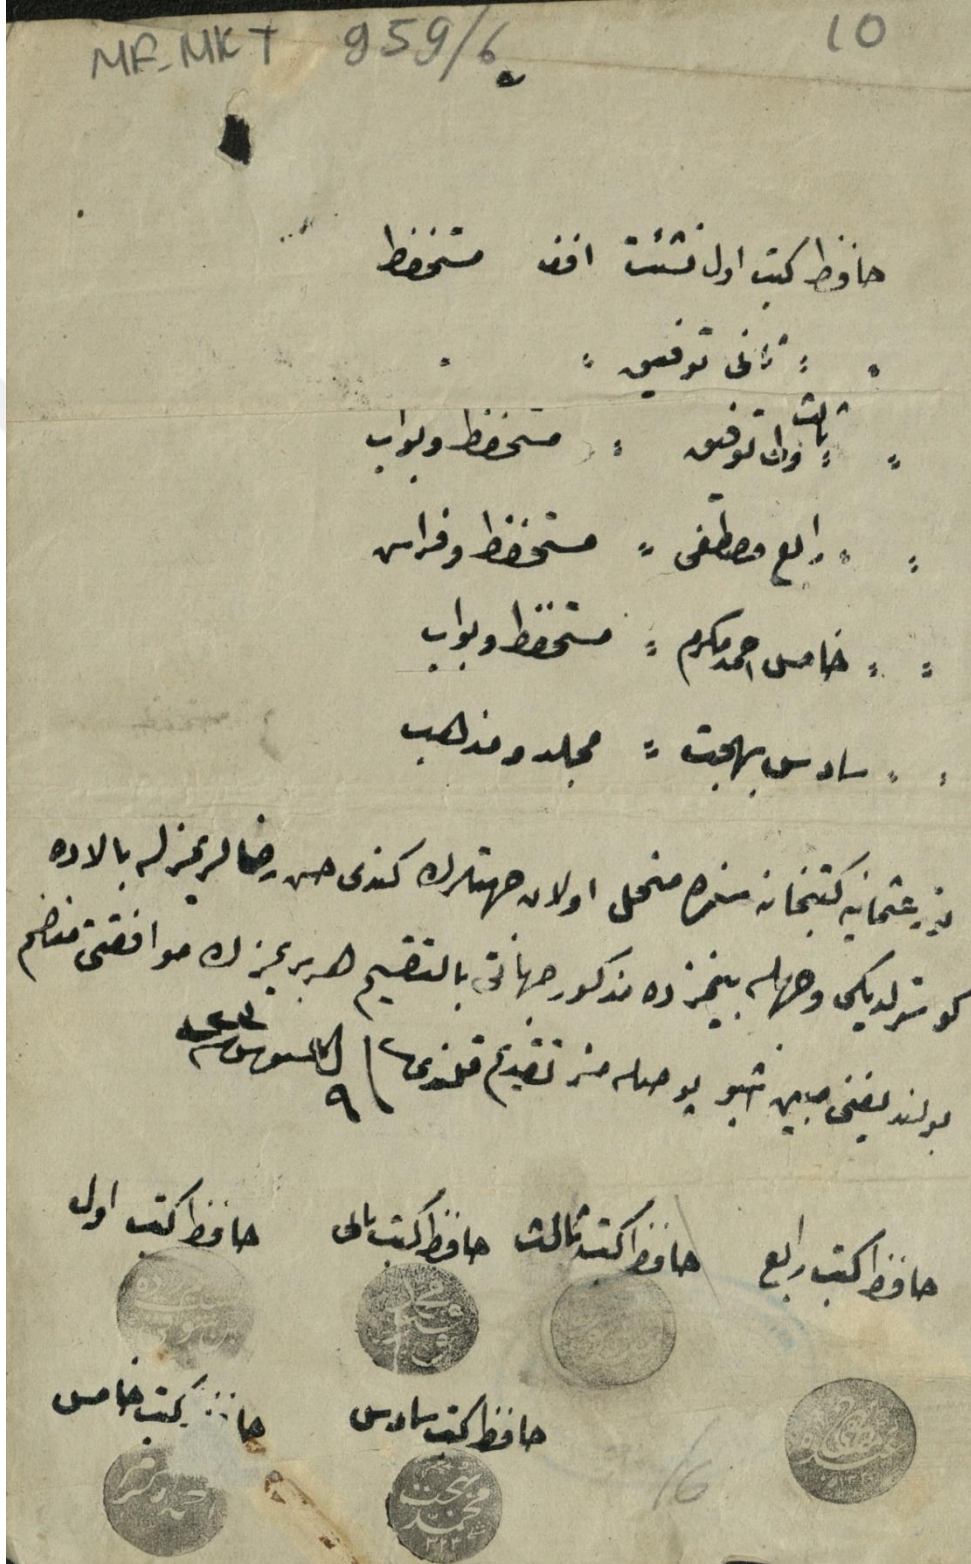 MF-MKT 959/6
10
حافظ كتب اول نشئت افند مستحفظ
〃 〃 ثانی توفیق 〃 〃
〃 〃 ثالث توفیق 〃 مستحفظ وبواب
〃 〃 رابع مصطفی 〃 مستحفظ وفراش
〃 〃 خامس احمد مكرم 〃 مستحفظ وبواب
〃 〃 سادس بهجت 〃 مجلد ومذهب
عثمانیه كتبخانه سنده منحل اولان جهتلرك كندی حسن رضالریمزله بالاده
كوسترلدیكی وجهله بینمزده مذكور جهاتی بالتقسیم هر بریمزك موافقتی منضم
بولندیغنی مبین اشبو بوصله مز تقدیم قلندی
٩
حافظ كتب رابع
حافظ كتب ثالث
حافظ كتب ثانی
حافظ كتب اول
حافظ كتب سادس
حافظ كتب خامس
بهجت
محمد
16